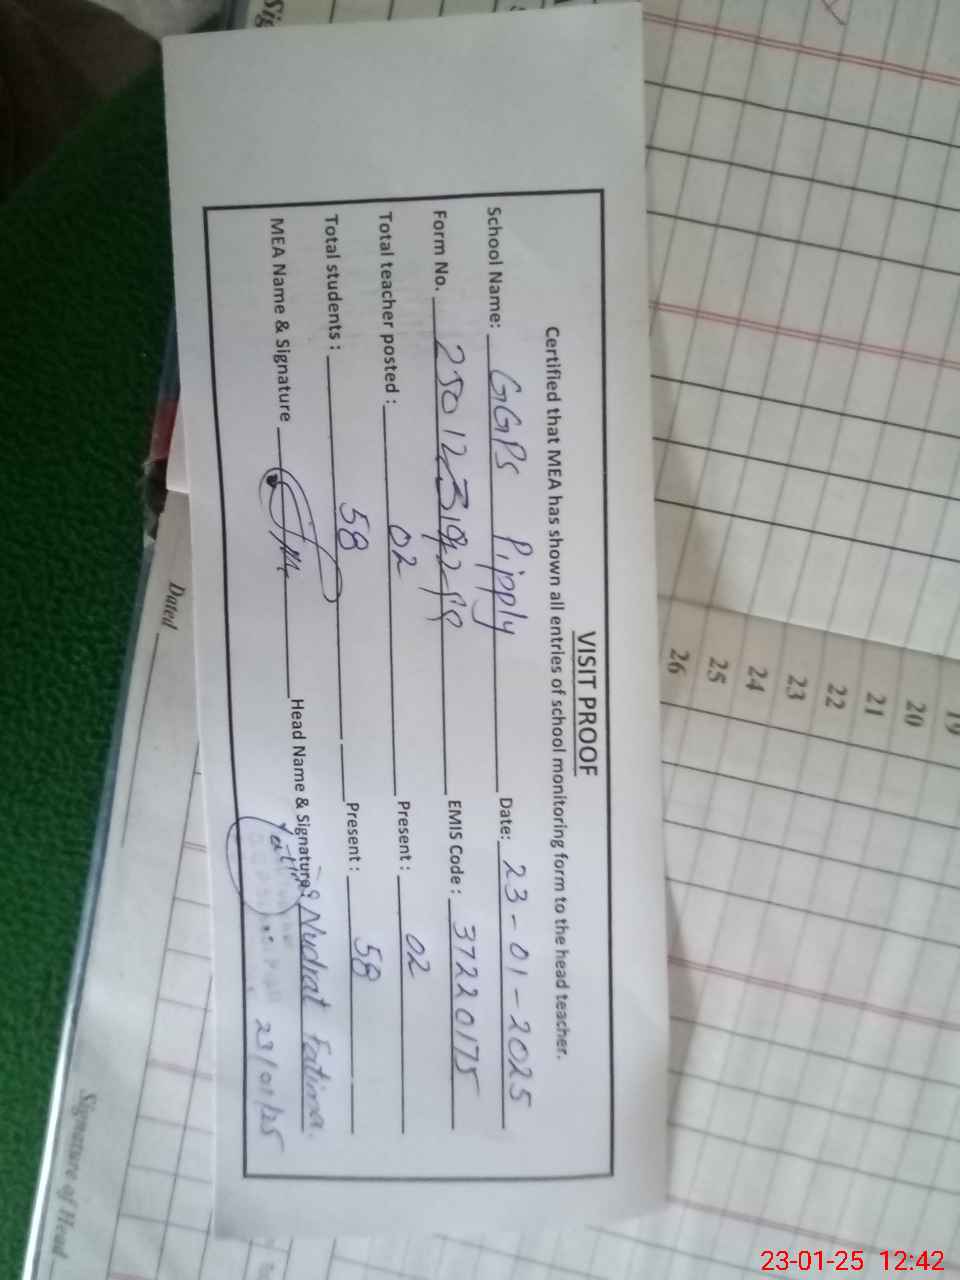 VISIT PROOF
Certified that MEA has shown all entries of school monitoring form to the head teacher.
School Name: GGPS Pipply Date: 23-01-2025
Form No. EMIS Code: 37220175
Total teacher posted: 02 Present: 02
Total students: 58 Present: 58
MEA Name & Signature Head Name & Signature: Nudrat Fatima
23/01/25
19
20
21
22
23
24
25
26
Dated
Signature of Head
23-01-25 12:42